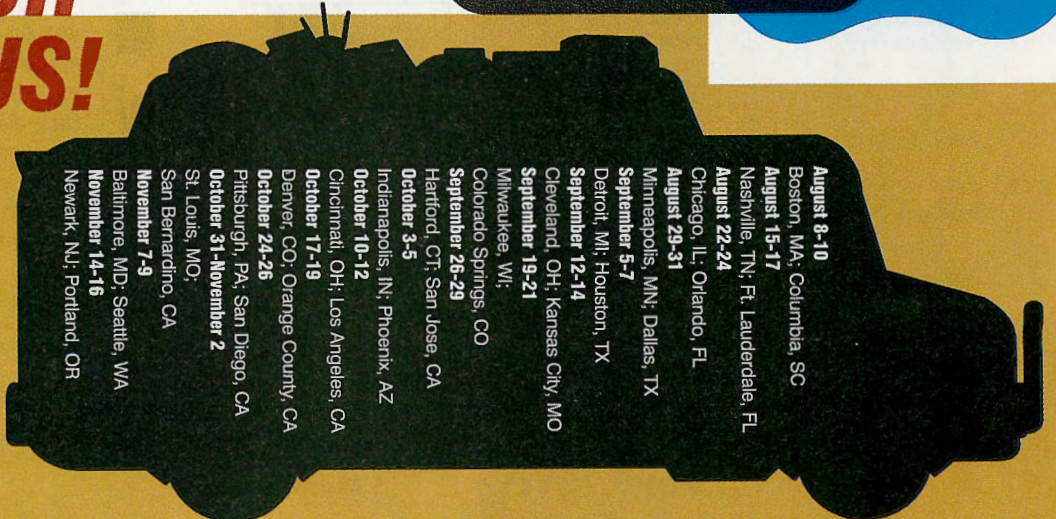 US!
August 8-10
Boston, MA; Columbia, SC
August 15-17
Nashville, TN; Ft. Lauderdale, FL
August 22-24
Chicago, IL; Orlando, FL
August 29-31
Minneapolis, MN; Dallas, TX
September 5-7
Detroit, MI; Houston, TX
September 12-14
Cleveland, OH; Kansas City, MO
September 19-21
Milwaukee, WI;
Colorado Springs, CO
September 26-29
Hartford, CT; San Jose, CA
October 3-5
Indianapolis, IN; Phoenix, AZ
October 10-12
Cincinnati, OH; Los Angeles, CA
October 17-19
Denver, CO; Orange County, CA
October 24-26
Pittsburgh, PA; San Diego, CA
October 31-November 2
St. Louis, MO;
San Bernardino, CA
November 7-9
Baltimore, MD; Seattle, WA
November 14-16
Newark, NJ; Portland, OR